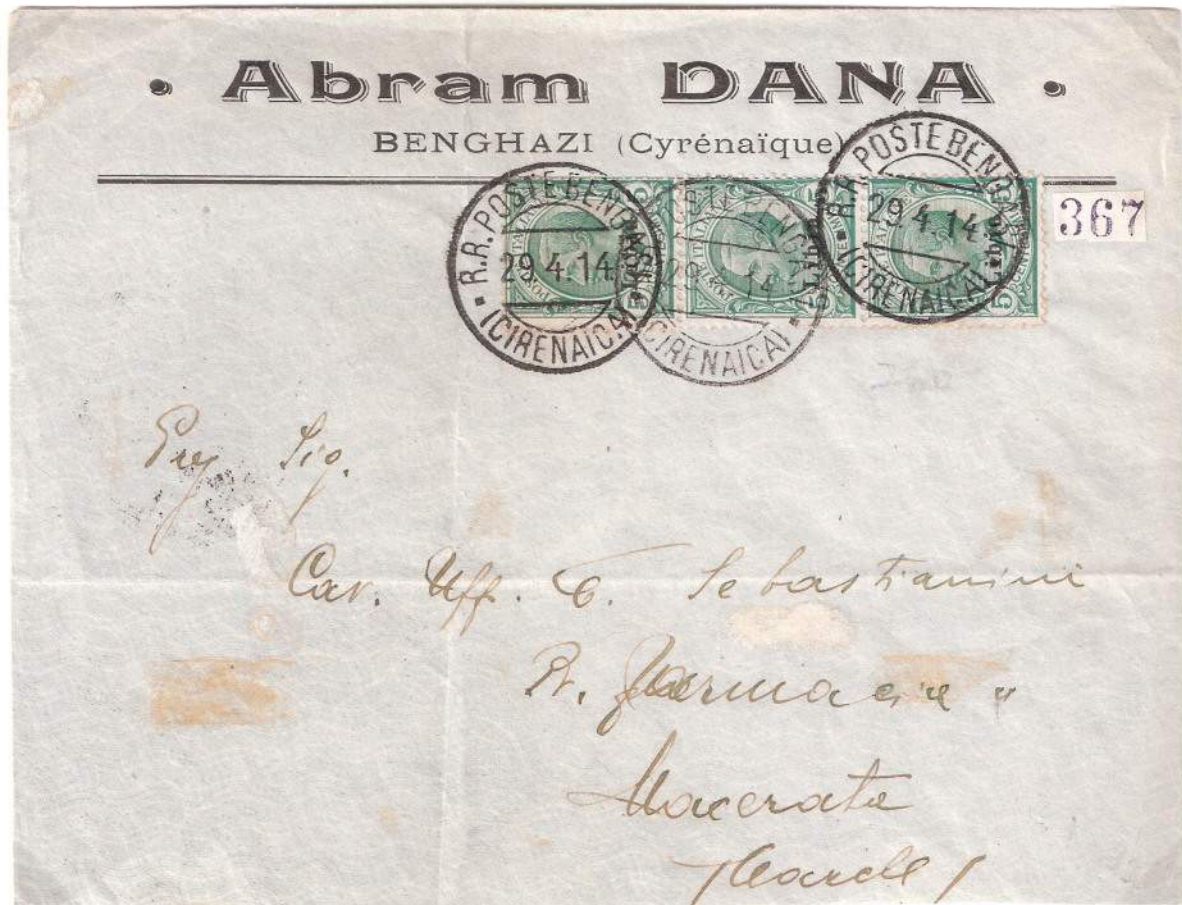 • Abram DANA •
BENGHAZI (Cyrénaïque)
R.R. POSTE BENGASI
29.4.14
(CIRENAICA)
R.R. POSTE BENGASI
29.4.14
(CIRENAICA)
R.R. POSTE BENGASI
29.4.14
(CIRENAICA)
367
Preg Sig.
Cav. Uff. C. Sebastianini
R. Farmacia "
Macerata
(Marche)